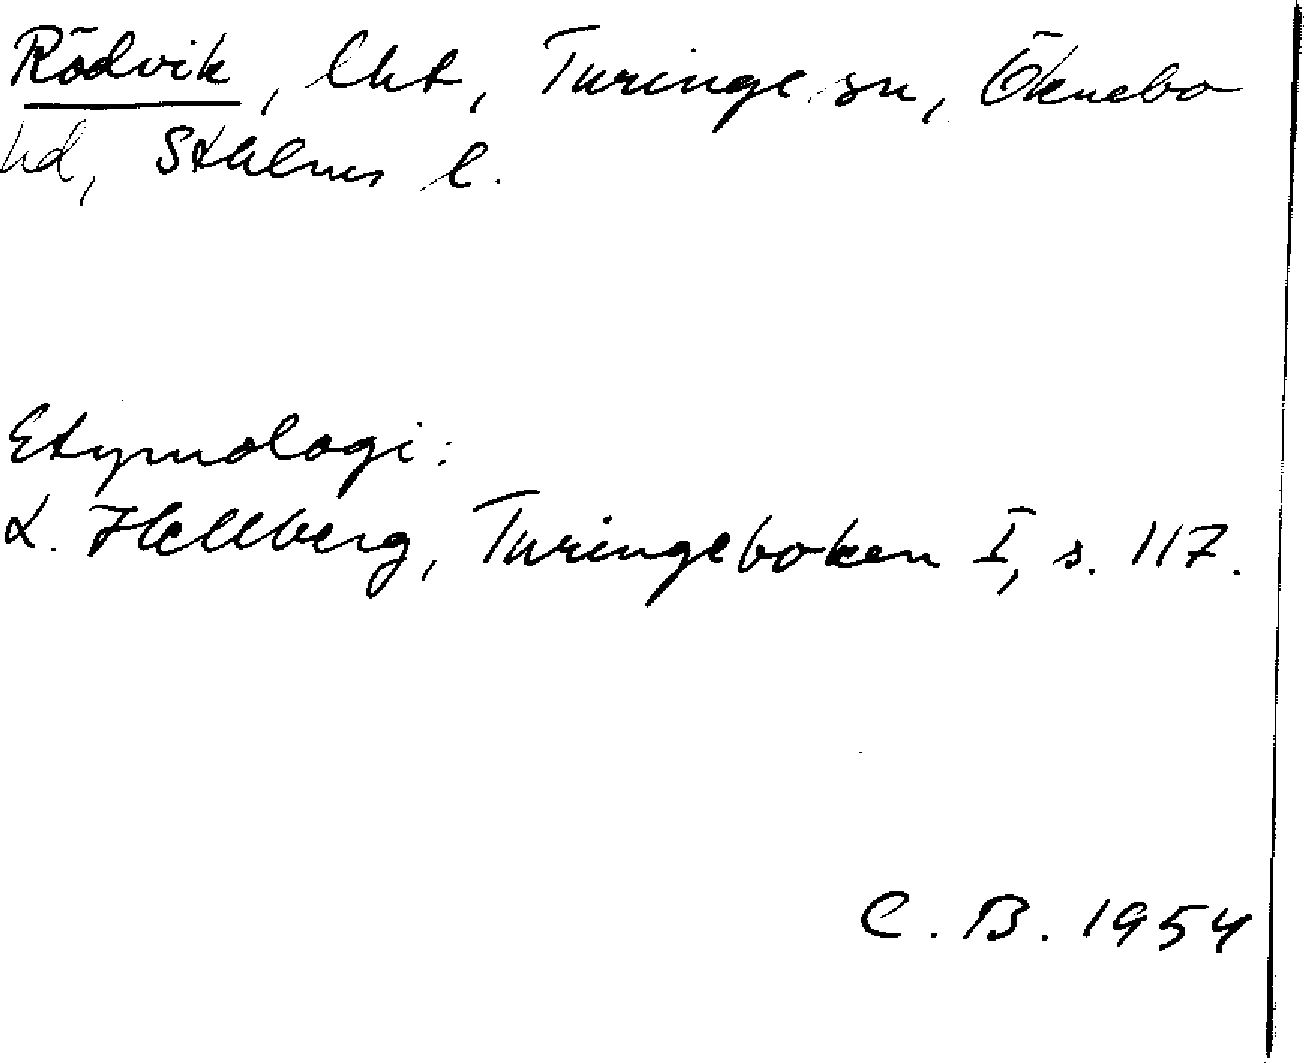 Rödvik, lht, Turinge sn, Öknebo
hd, Sthlms l.
Etymologi:
L. Hellberg, Turingeboken I, s. 117.
C. B. 1954